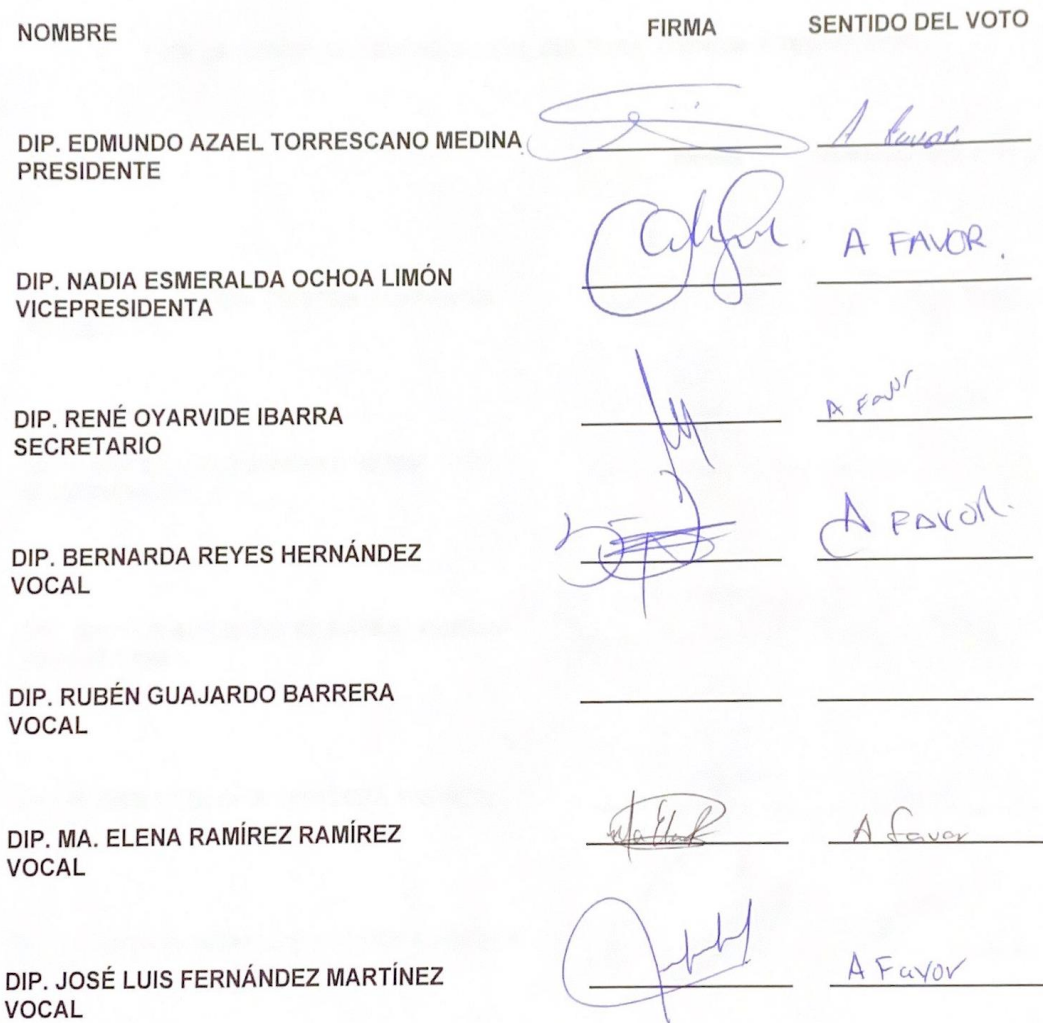 NOMBRE FIRMA SENTIDO DEL VOTO
DIP. EDMUNDO AZAEL TORRESCANO MEDINA A favor
PRESIDENTE
A FAVOR.
DIP. NADIA ESMERALDA OCHOA LIMÓN
VICEPRESIDENTA
DIP. RENÉ OYARVIDE IBARRA A Favor
SECRETARIO
A FAVOR.
DIP. BERNARDA REYES HERNÁNDEZ
VOCAL
DIP. RUBÉN GUAJARDO BARRERA
VOCAL
DIP. MA. ELENA RAMÍREZ RAMÍREZ A favor
VOCAL
DIP. JOSÉ LUIS FERNÁNDEZ MARTÍNEZ A Favor
VOCAL